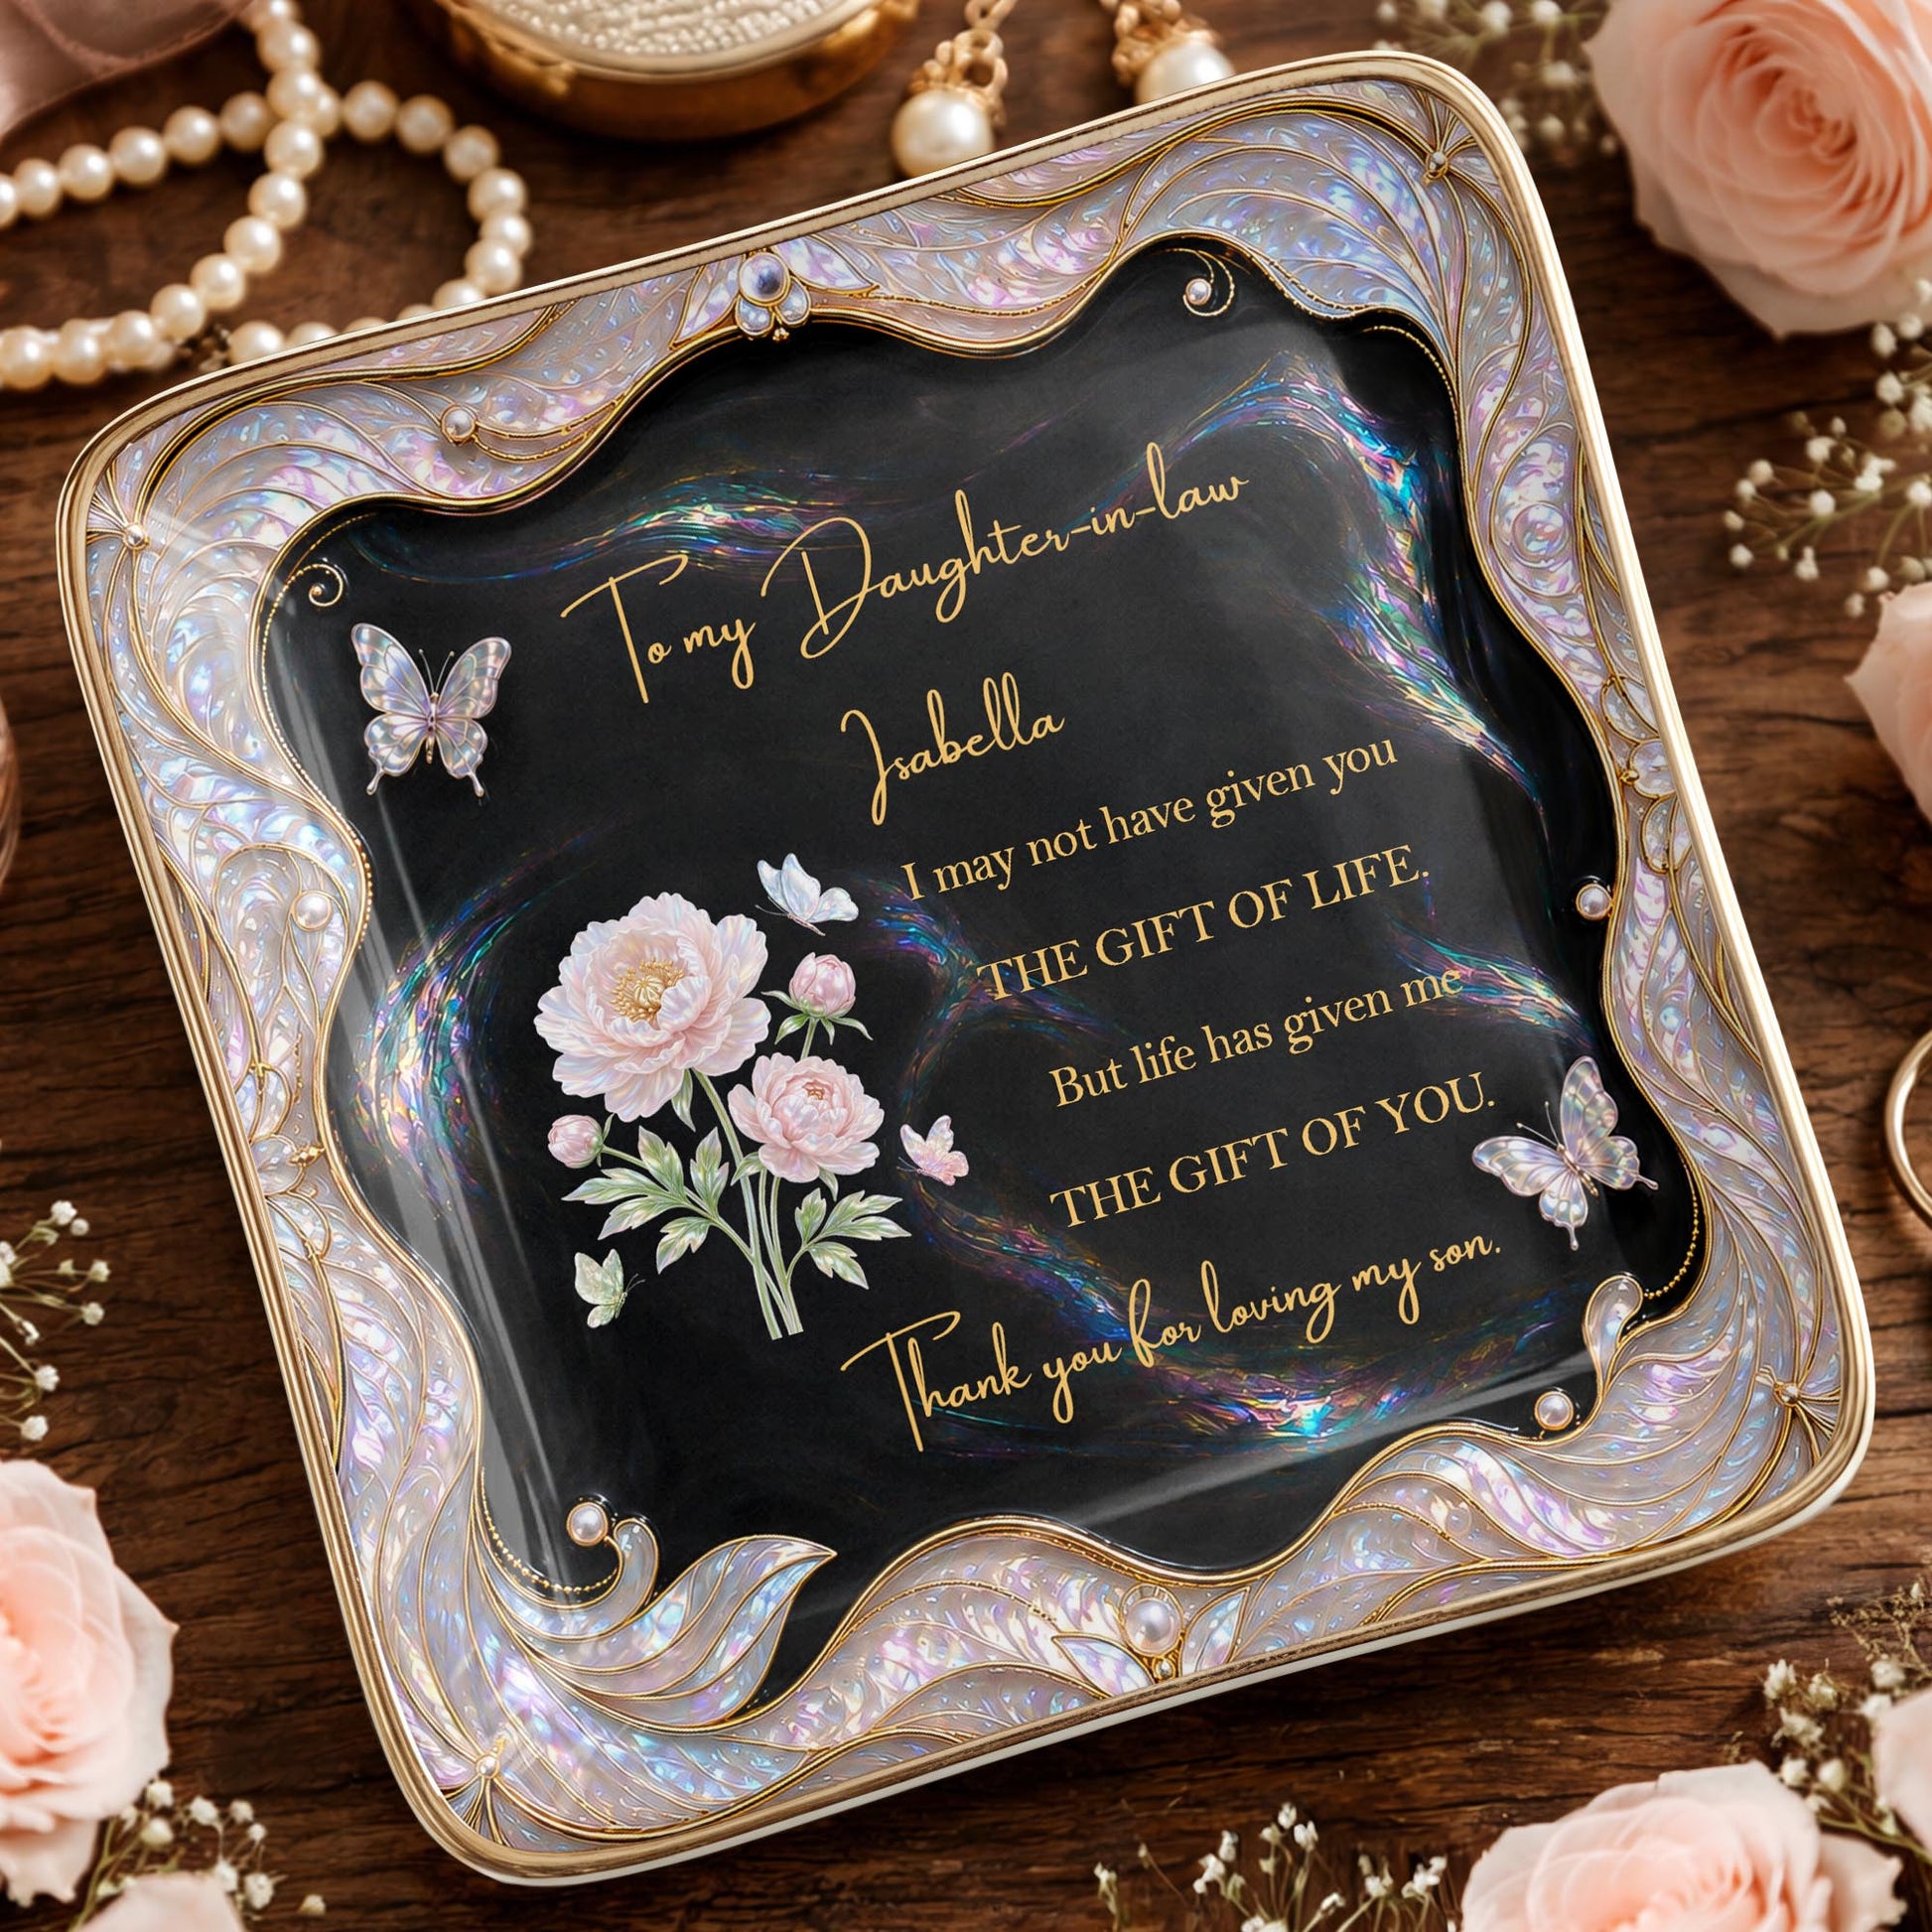 To my Daughter-in-law
Isabella
I may not have given you
THE GIFT OF LIFE.
But life has given me
THE GIFT OF YOU.
Thank you for loving my son.